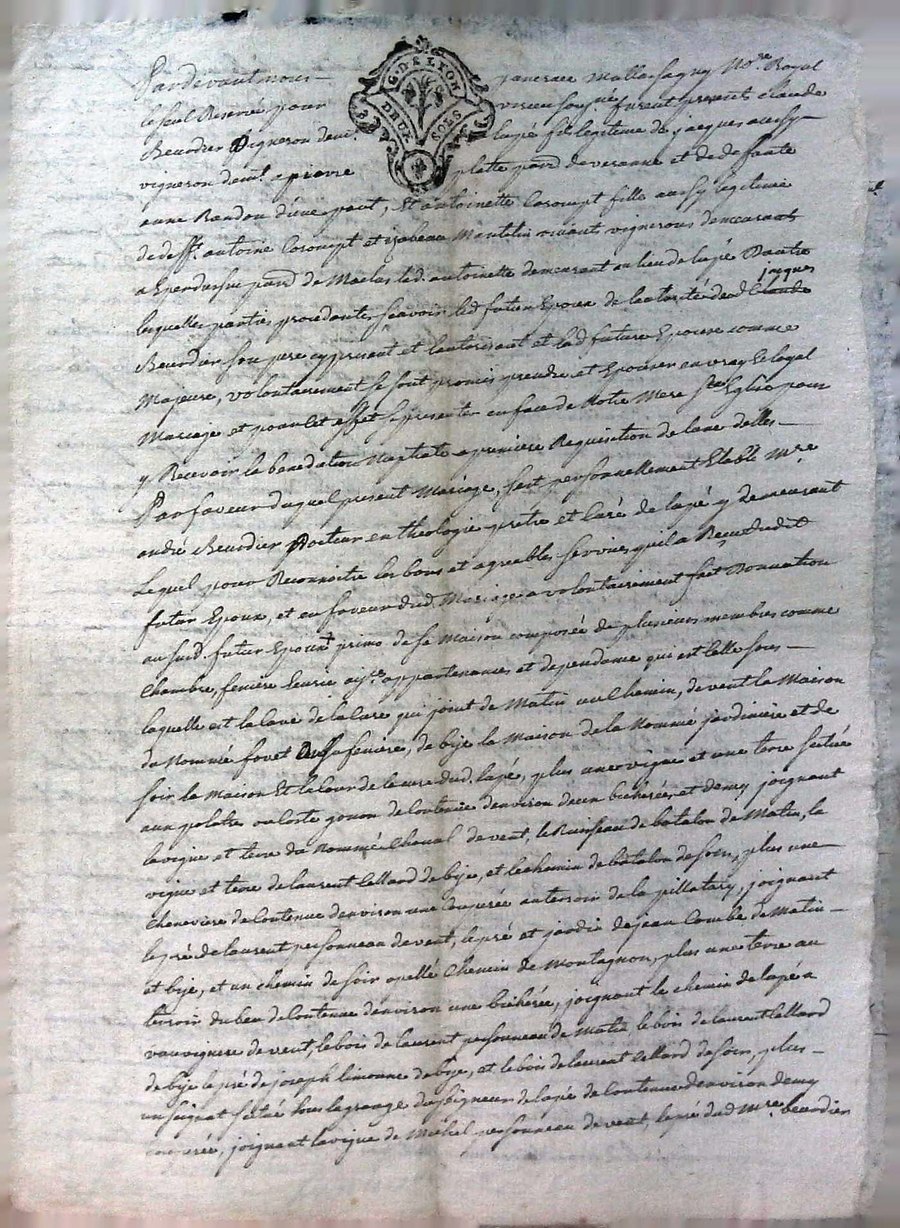 G. D. E LYON
DEUX SOLS
Pardevant nous pancrace Mallassagny No.re Royal
le seul Reservé pour virieu soussigné furent presents claude
Beurdier Vigneron de lupé fils legitime de jacques aussy
vigneron de pierre platte par.d de veranne et de deffunte
anne Randon d'une part, Et antoinette Corompt fille aussy legitime
de deff.t antoine Corompt et izabeau Mantelin vivants vignerons demeurants
a Eperdussin par.d de Maclas lad. antoinette demeurant au lieu de lupé Dautre
lesquelles parties procedantes sçavoir led futur Epoux de lautorité dud Claude jacques
Beurdier son pere cy present et lautorisant et lad future Epouse comme
Majeure, volontairement se sont promis prendre et Epouser en vray Et loyal
Mariage et pour cet effet se presenter en face de Notre Mere S.te Eglise pour
y Recevoir la benediction Nuptiale a premiere Requisition de lune delles
Par faveur duquel present Mariage, sest personnellement Etabli M.re
andré Beurdier Docteur en theologie pretre et Curé de lupé y demeurant
Lequel pour Reconnoitre les bons et agreables services quil a Reçu dudit
futur Epoux, et en faveur dud. Mariage a volontairement fait Donnation
au susd. futur Epoux primo de sa Maison composée de plusieurs membres comme
Chambre, feniere Ecurie aysa.e appartenances et dependance qui est Celle sous
laquelle est la Cave de la Cure qui joint de Matin un Chemin, de vent la Maison
du Nommé foret sa feniere, de bize la Maison de la Nommé jardiniere et de
soir la Maison Et la Cour de la Cure dud. lupé, plus une vigne et une terre située
aux polates ou Coste gonon de Contenue denviron deux bicherées et demy joignant
la vigne et terre du Nommé Cheval de vent, le Ruisseau de batalon de Matin, la
vigne et terre de laurent Cellard de bize, et le chemin de batalon de soir, plus une
Cheneviere de Contenue denviron une Couperée au terroir de la pillatary, joignant
le pré de laurent personneau de vent, le pré et jardin de jean Combe de Matin
et bize, et un chemin de soir apellé Chemin de Montagnon, plus une terre au
terroir du beu de Contenue denviron une bicherée, joignant le chemin de lupé a
vauvignere de vent, le bois de laurent personneau de Matin le bois de laurent Cellard
de bize le pré de joseph limonne de bize, et le bois de laurent Cellard de soir, plus
un seignat situé sous la grange du seigneur de lupé de Contenue denviron demy
couperée, joignant la vigne de Michel personneau de vent, le pré dud M.re beurdier